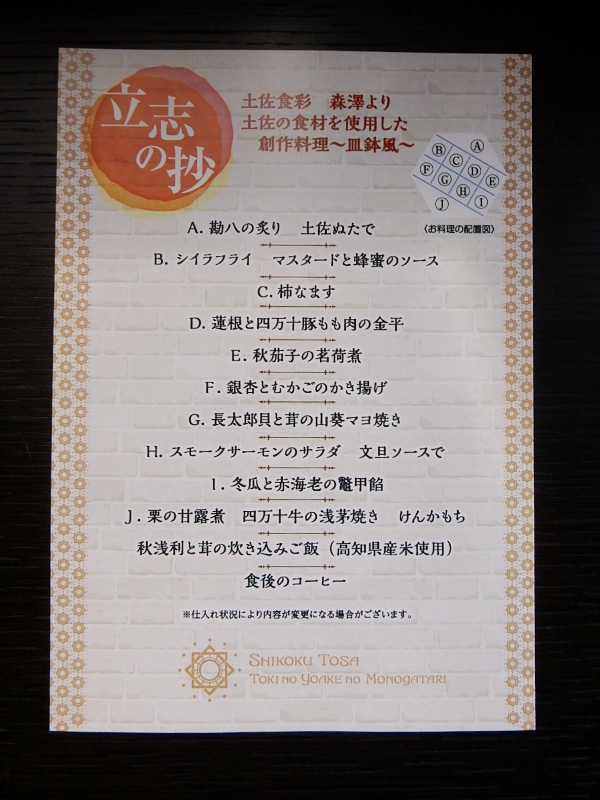 立志
の抄
土佐食彩　森澤より
土佐の食材を使用した
創作料理～皿鉢風～
A
B
C
D
E
F
G
H
I
J
〈お料理の配置図〉
A. 勘八の炙り　土佐ぬたで
B. シイラフライ　マスタードと蜂蜜のソース
C. 柿なます
D. 蓮根と四万十豚もも肉の金平
E. 秋茄子の茗荷煮
F. 銀杏とむかごのかき揚げ
G. 長太郎貝と茸の山葵マヨ焼き
H. スモークサーモンのサラダ　文旦ソースで
I. 冬瓜と赤海老の鼈甲餡
J. 栗の甘露煮　四万十牛の浅茅焼き　けんかもち
秋浅利と茸の炊き込みご飯（高知県産米使用）
食後のコーヒー
※仕入れ状況により内容が変更になる場合がございます。
SHIKOKU TOSA
TOKI NO YOAKE NO MONOGATARI